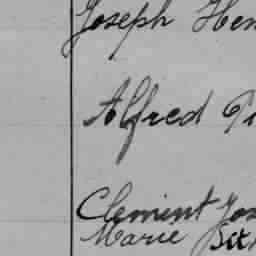 Joseph Hen
Alfred
Clement Jos
Marie